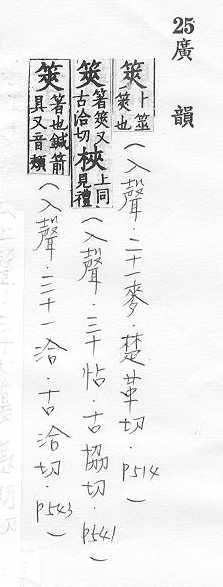 25 廣韻
筴 卜筮筴也 (入聲.二十一麥.楚革切.p514)
筴 箸筴又古洽切 梜 上同見禮 (入聲.三十帖.古協切.p541)
筴 箸也鍼箭具又音頰 (入聲.三十一洽.古洽切.p543)